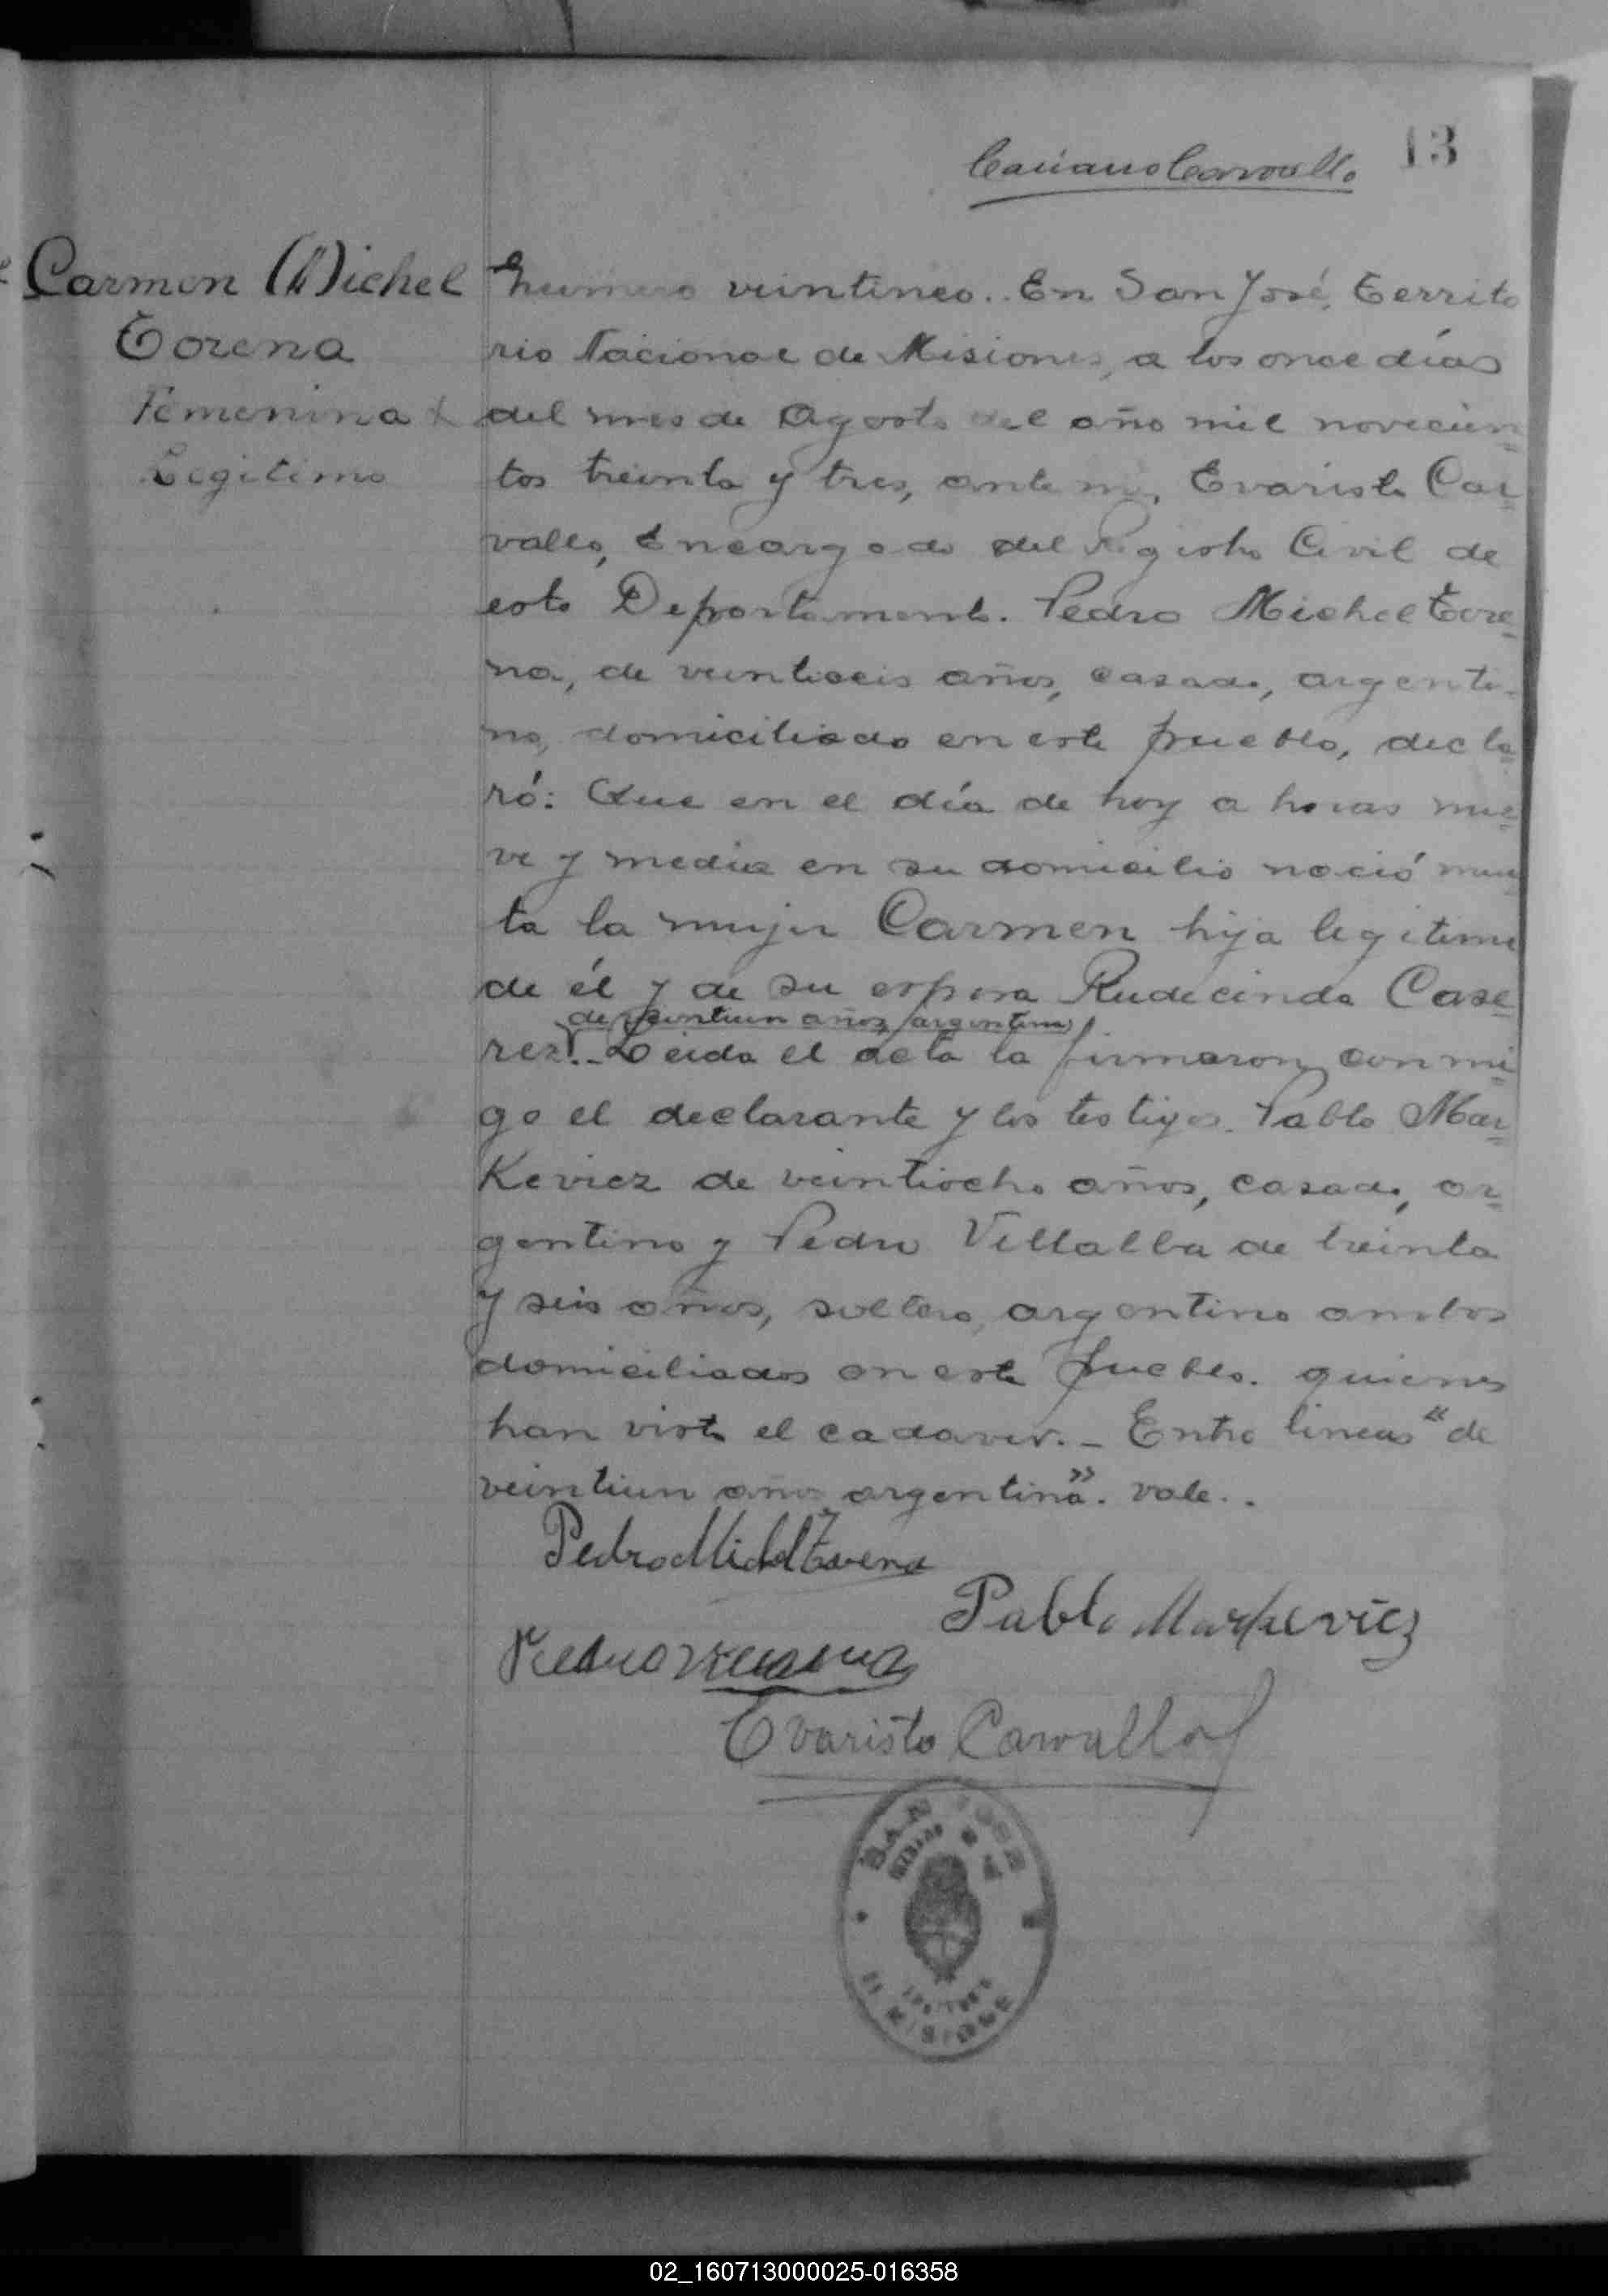 13
Carmen Michel
Torena
Femenina
Legitima
Numero veinticinco.. En San José, Territo
rio Nacional de Misiones, a los once días
del mes de Agosto del año mil novecien-
tos treinta y tres, ante mi, Evaristo Car-
vallo, Encargado del Registro Civil de
este Departamento. Pedro Michel Tore-
na, de veintiseis años, casado, argenti-
no, domiciliado en este pueblo, decla-
ró: Que en el día de hoy a horas nue-
ve y media en su domicilio nació muer-
ta la mujer Carmen hija legitima
de él y de su esposa Rudecinda Case
de veintiun años, argentina
rez.- Leida el acta la firmaron conmi-
go el declarante y los testigos. Pablo Mar-
Kevicz de veintiocho años, casado, ar-
gentino y Pedro Villalba de treinta
y seis años, soltero, argentino ambos
domiciliados en este pueblo. quienes
han visto el cadaver.- Entre lineas "de
veintiun años argentina". vale..
Pedro Michel Torena
Pablo Markevicz
Pedro
Evaristo Carvallo
SAN JOSE
MISIONES
02_160713000025-016358